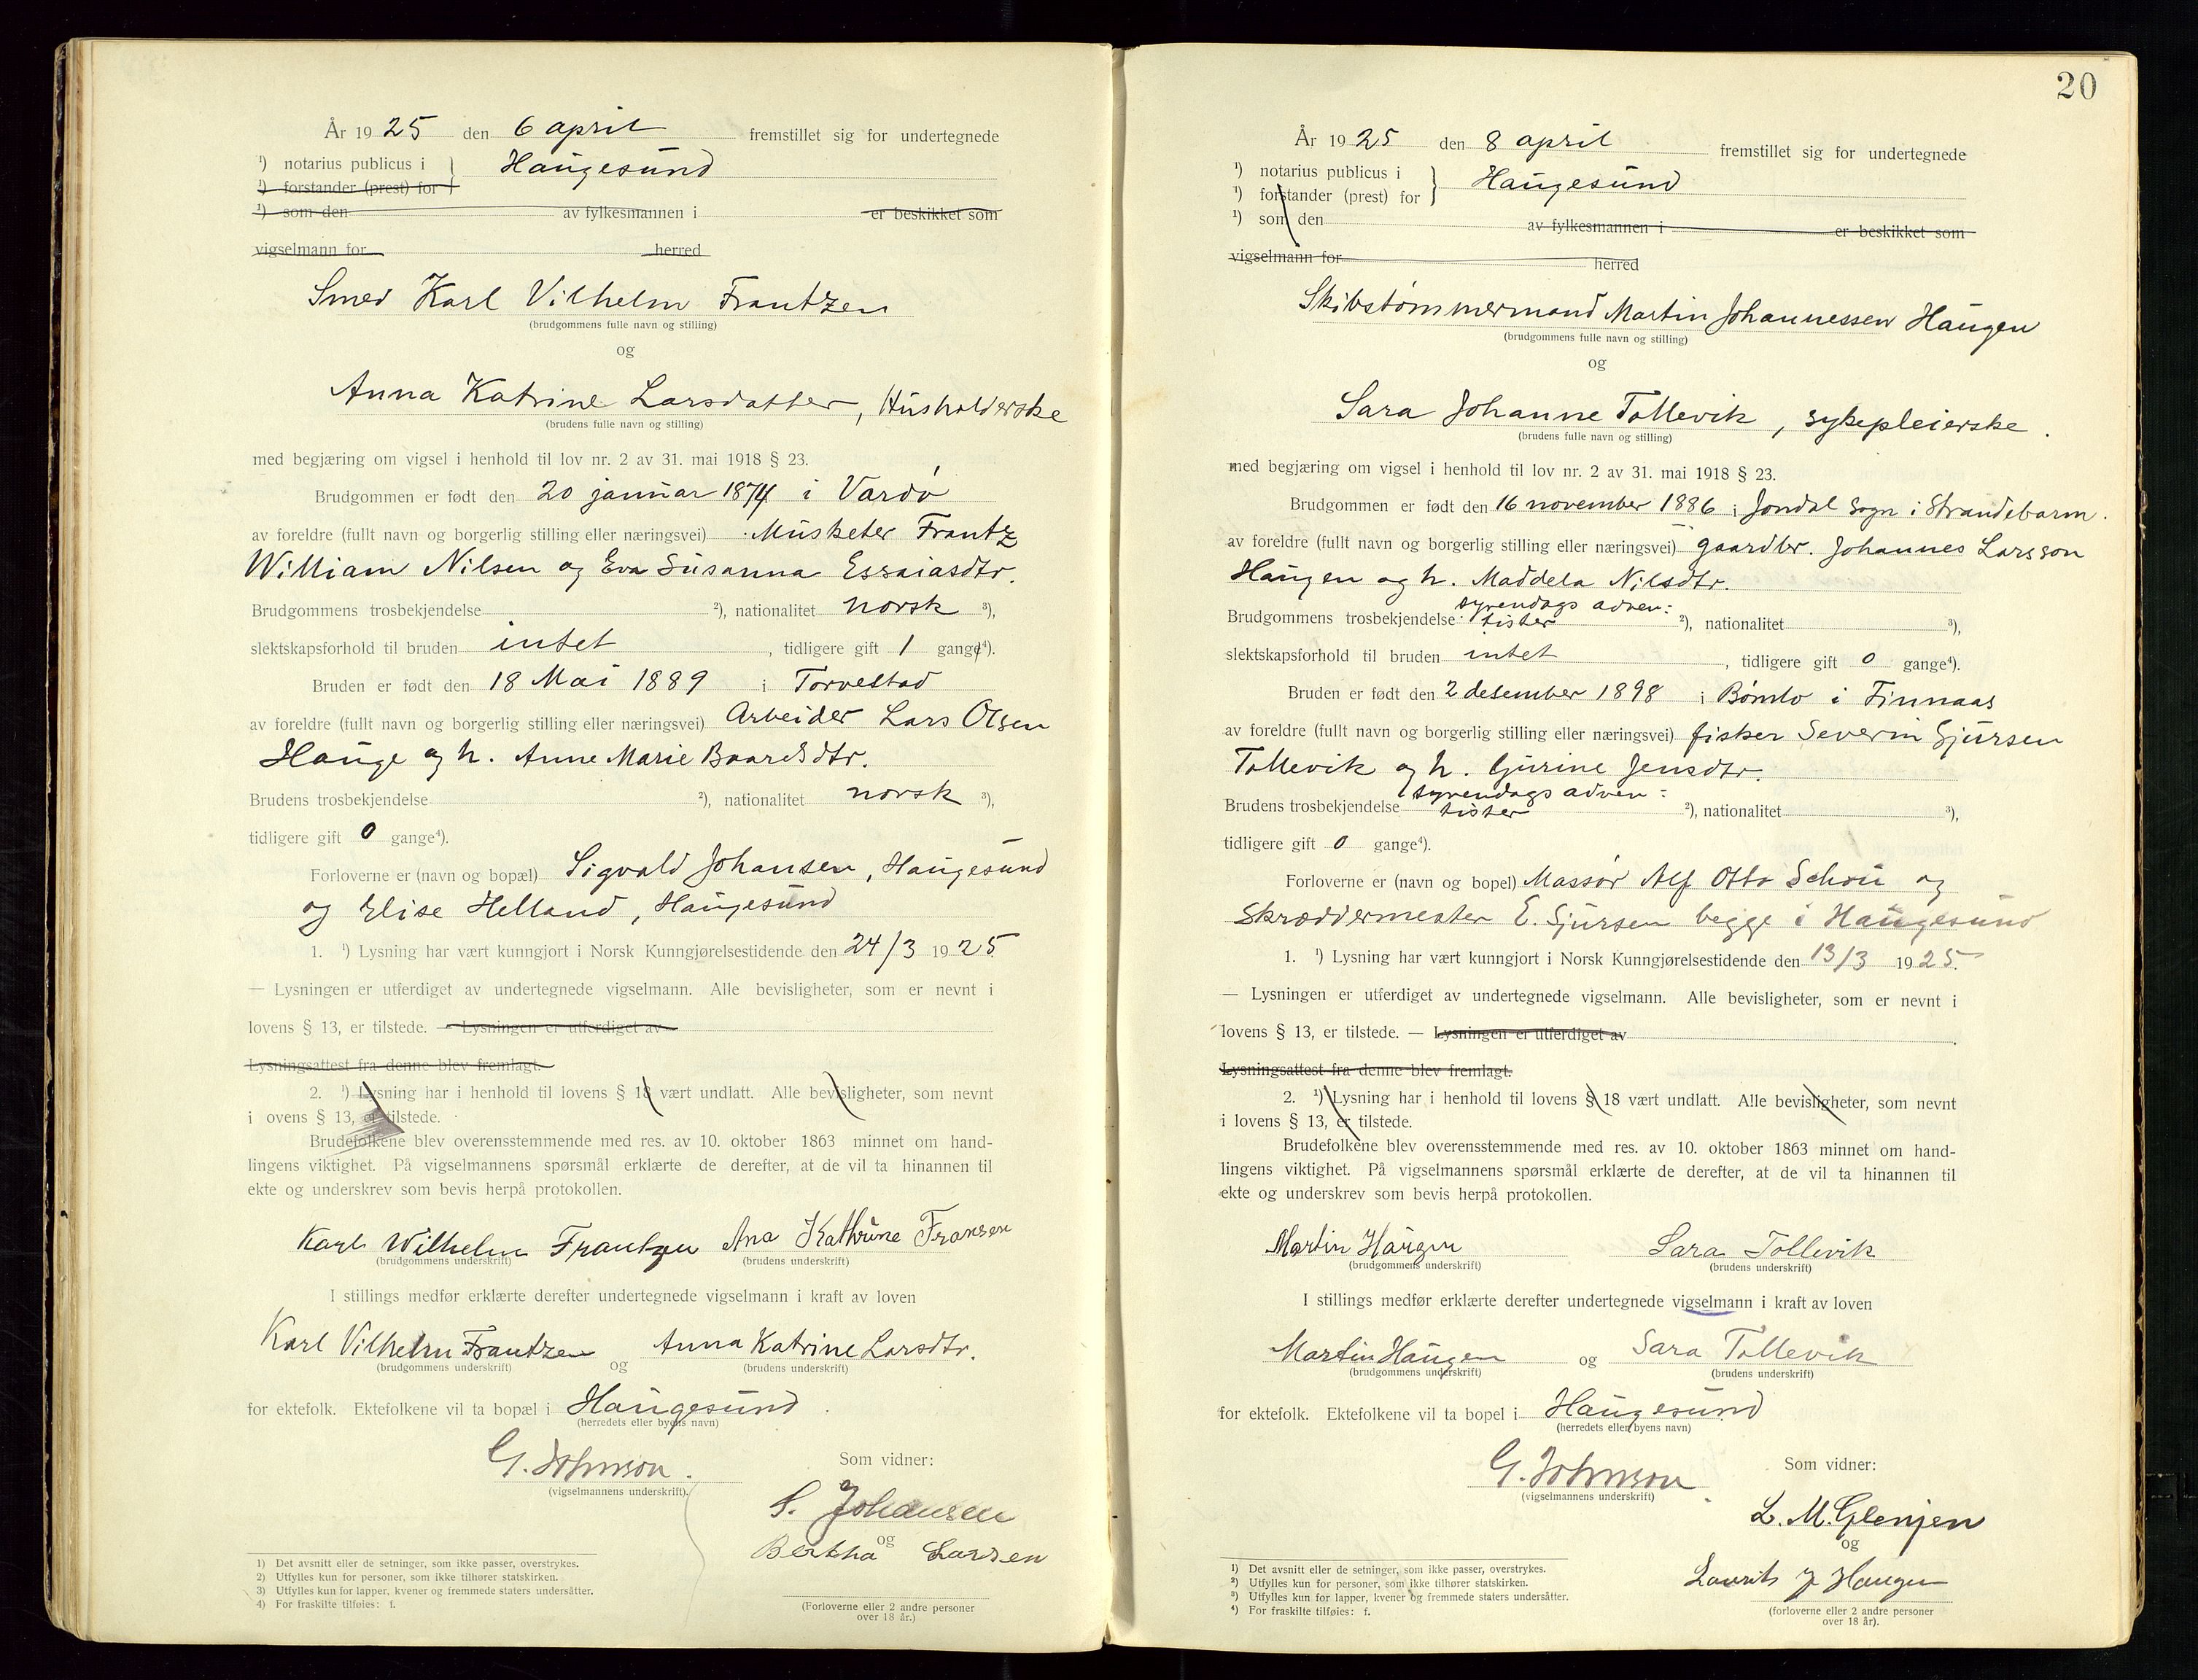 År 1925 den 6 april fremstillet sig for undertegnede
¹) notarius publicus i } Haugesund
¹) forstander (prest) for
¹) som den av fylkesmannen i er beskikket som
vigselmann for herred
Smed Karl Vilhelm Frantzen
(brudgommens fulle navn og stilling)
og
Anna Katrine Larsdatter, Husholderske
(brudens fulle navn og stilling)
med begjæring om vigsel i henhold til lov nr. 2 av 31. mai 1918 § 23.
Brudgommen er født den 20 januar 1874 i Vardö
av foreldre (fullt navn og borgerlig stilling eller næringsvei) Musketer Frantz
William Nilsen og Eva Susanna Essaiasdtr.
Brudgommens trosbekjendelse ²), nationalitet norsk ³),
slektskapsforhold til bruden intet, tidligere gift 1 gang⁴).
Bruden er født den 18 Mai 1889 i Torvestad
av foreldre (fullt navn og borgerlig stilling eller næringsvei) Arbeider Lars Olsen
Hauge og h. Anne Marie Baardsdtr.
Brudens trosbekjendelse ²), nationalitet norsk ³),
tidligere gift 0 gange⁴).
Forloverne er (navn og bopæl) Sigvald Johansen, Haugesund
og Elise Helland, Haugesund
1. ¹) Lysning har vært kunngjort i Norsk Kunngjørelsestidende den 24/3 1925.
— Lysningen er utferdiget av undertegnede vigselmann. Alle bevisligheter, som er nevnt i
lovens § 13, er tilstede. — Lysningen er utferdiget av
Lysningsattest fra denne blev fremlagt.
2. ¹) Lysning har i henhold til lovens § 18 vært undlatt. Alle bevisligheter, som nevnt
i ovens § 13, er tilstede.
Brudefolkene blev overensstemmende med res. av 10. oktober 1863 minnet om hand-
lingens viktighet. På vigselmannens spørsmål erklærte de derefter, at de vil ta hinannen til
ekte og underskrev som bevis herpå protokollen.
Karl Wilhelm Frantzen Ana Kathrine Fransen
(brudgommens underskrift) (brudens underskrift)
I stillings medfør erklærte derefter undertegnede vigselmann i kraft av loven
Karl Vilhelm Frantzen og Anna Katrine Larsdtr.
(brudgommens underskrift) (brudens underskrift)
for ektefolk. Ektefolkene vil ta bopæl i Haugesund.
(herredets eller byens navn)
G. Johnson.
(vigselmannens underskrift).
Som vidner:
S. Johansen
og
Bertha Larsen
(Forloverne eller 2 andre personer
over 18 år.)
1) Det avsnitt eller de setninger, som ikke passer, overstrykes.
2) Utfylles kun for personer, som ikke tilhører statskirken.
3) Utfylles kun for lapper, kvener og fremmede staters undersåtter.
4) For fraskilte tilføies: f.
20
År 1925 den 8 april fremstillet sig for undertegnede
¹) notarius publicus i } Haugesund
¹) forstander (prest) for
¹) som den av fylkesmannen i er beskikket som
vigselmann for herred
Skibstømmermand Martin Johannessen Haugen
(brudgommens fulle navn og stilling)
og
Sara Johanne Tollevik, sykepleierske.
(brudens fulle navn og stilling)
med begjæring om vigsel i henhold til lov nr. 2 av 31. mai 1918 § 23.
Brudgommen er født den 16 november 1886 i Jondal sogn i Strandebarm.
av foreldre (fullt navn og borgerlig stilling eller næringsvei) gaardbr. Johannes Larsson
Haugen og h. Maddela Nilsdtr.
Brudgommens trosbekjendelse syvendags adven=tister ²), nationalitet ³),
slektskapsforhold til bruden intet, tidligere gift 0 gange⁴).
Bruden er født den 2 desember 1898 i Bømlo i Finnaas
av foreldre (fullt navn og borgerlig stilling eller næringsvei) fisker Severin Gjursen
Tollevik og h. Gurine Jensdtr.
Brudens trosbekjendelse syvendags adven=tister ²), nationalitet ³),
tidligere gift 0 gange⁴).
Forloverne er (navn og bopel) Massør Alf Otto Schou og
Skræddermester E. Sjursen begge i Haugesund
1. ¹) Lysning har vært kunngjort i Norsk Kunngjørelsestidende den 13/3 1925.
— Lysningen er utferdiget av undertegnede vigselmann. Alle bevisligheter, som er nevnt i
lovens § 13, er tilstede. — Lysningen er utferdiget av
Lysningsattest fra denne blev fremlagt.
2. ¹) Lysning har i henhold til lovens § 18 vært undlatt. Alle bevisligheter, som nevnt
i lovens § 13, er tilstede.
Brudefolkene blev overensstemmende med res. av 10. oktober 1863 minnet om hand-
lingens viktighet. På vigselmannens spørsmål erklærte de derefter, at de vil ta hinannen til
ekte og underskrev som bevis herpå protokollen.
Martin Haugen Sara Tollevik
(brudgommens underskrift) (brudens underskrift)
I stillings medfør erklærte derefter undertegnede vigselmann i kraft av loven
Martin Haugen og Sara Tollevik
(brudgommens underskrift) (brudens underskrift)
for ektefolk. Ektefolkene vil ta bopel i Haugesund
(herredets eller byens navn)
G. Johnson.
(vigselmannens underskrift)
Som vidner:
L. M. Glenjen
og
Laurits J Haugen
(forloverne eller 2 andre personer
over 18 år).
¹) Det avsnitt eller de setninger, som ikke passer, overstrykes.
²) Utfylles kun for personer, som ikke tilhører statskirken.
³) Utfylles kun for lapper, kvener og fremmede staters undersåtter.
⁴) For fraskilte tilføies: f.